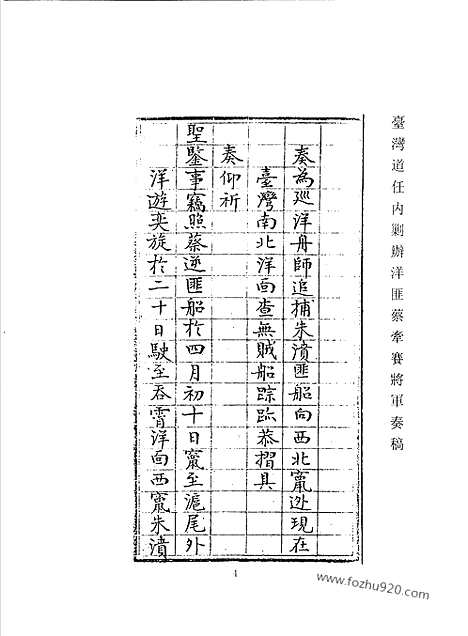 臺灣道任內剿辦洋匪蔡牽賽將軍奏稿
奏為巡洋舟師追捕朱濆匪船向西北竄逊現在
臺灣南北洋面查無賊船踪跡恭摺具
奏仰祈
聖鑒事竊照蔡逆匪船於四月初十日竄至滬尾外
洋遊奕旋於二十日駛至吞霄洋面西竄朱濆
1
www.fozhu920.com